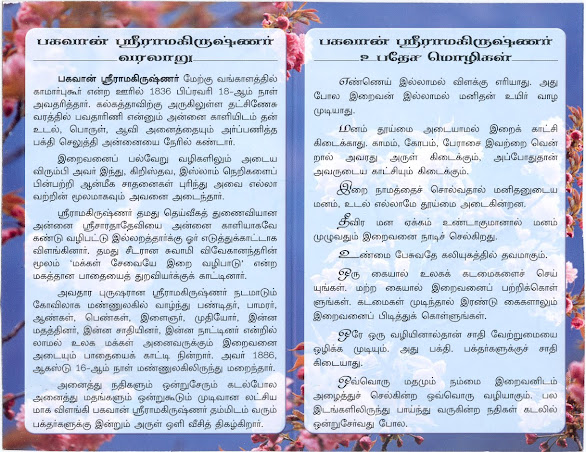 பகவான் ஸ்ரீராமகிருஷ்ணர்
வரலாறு
பகவான் ஸ்ரீராமகிருஷ்ணர் மேற்கு வங்காளத்தில்
காமார்புகூர் என்ற ஊரில் 1836 பிப்ரவரி 18-ஆம் நாள்
அவதரித்தார். கல்கத்தாவிற்கு அருகிலுள்ள தட்சிணேசு
வரத்தில் பவதாரிணி என்னும் அன்னை காளியிடம் தன்
உடல், பொருள், ஆவி அனைத்தையும் அர்ப்பணித்த
பக்தி செலுத்தி அன்னையை நேரில் கண்டார்.
இறைவனைப் பல்வேறு வழிகளிலும் அடைய
விரும்பி அவர் இந்து, கிறிஸ்தவ, இஸ்லாம் நெறிகளைப்
பின்பற்றி ஆன்மீக சாதனைகள் புரிந்து அவை எல்லா
வற்றின் மூலமாகவும் அவனை அடைந்தார்.
ஸ்ரீராமகிருஷ்ணர் தமது தெய்வீகத் துணைவியான
அன்னை ஸ்ரீசாரதாதேவியை அன்னை காளியாகவே
கண்டு வழிபட்டு இல்லறத்தார்க்கு ஓர் எடுத்துக்காட்டாக
விளங்கினார். தமது சீடரான சுவாமி விவேகானந்தரின்
மூலம் 'மக்கள் சேவையே இறை வழிபாடு' என்ற
மகத்தான பாதையைத் துறவியர்க்குக் காட்டினார்.
அவதார புருஷரான ஸ்ரீராமகிருஷ்ணர் நடமாடும்
கோவிலாக மண்ணுலகில் வாழ்ந்து பண்டிதர், பாமரர்,
ஆண்கள், பெண்கள், இளைஞர், முதியோர், இன்ன
மதத்தினர், இன்ன சாதியினர், இன்ன நாட்டினர் என்றில்
லாமல் உலக மக்கள் அனைவருக்கும் இறைவனை
அடையும் பாதையைக் காட்டி நின்றார். அவர் 1886,
ஆகஸ்டு 16-ஆம் நாள் மண்ணுலகிலிருந்து மறைந்தார்.
அனைத்து நதிகளும் ஒன்றுசேரும் கடல்போல
அனைத்து மதங்களும் ஒன்றுகூடும் முடிவான லட்சிய
மாக விளங்கி பகவான் ஸ்ரீராமகிருஷ்ணர் தம்மிடம் வரும்
பக்தர்களுக்கு இன்றும் அருள் ஒளி வீசித் திகழ்கிறார்.
பகவான் ஸ்ரீராமகிருஷ்ணர்
உபதேச மொழிகள்
எண்ணெய் இல்லாமல் விளக்கு எரியாது. அது
போல இறைவன் இல்லாமல் மனிதன் உயிர் வாழ
முடியாது.
மனம் தூய்மை அடையாமல் இறைக் காட்சி
கிடைக்காது. காமம், கோபம், பேராசை இவற்றை வென்
றால் அவரது அருள் கிடைக்கும், அப்போதுதான்
அவருடைய காட்சியும் கிடைக்கும்.
இறை நாமத்தைச் சொல்வதால் மனிதனுடைய
மனம், உடல் எல்லாமே தூய்மை அடைகின்றன.
தீவிர மன ஏக்கம் உண்டாகுமானால் மனம்
முழுவதும் இறைவனை நாடிச் செல்கிறது.
உண்மை பேசுவதே கலியுகத்தில் தவமாகும்.
ஒரு கையால் உலகக் கடமைகளைச் செய்
யுங்கள். மற்ற கையால் இறைவனைப் பற்றிக்கொள்
ளுங்கள். கடமைகள் முடிந்தால் இரண்டு கைகளாலும்
இறைவனைப் பிடித்துக் கொள்ளுங்கள்.
ஒரே ஒரு வழியினால்தான் சாதி வேற்றுமையை
ஒழிக்க முடியும். அது பக்தி. பக்தர்களுக்குச் சாதி
கிடையாது.
ஒவ்வொரு மதமும் நம்மை இறைவனிடம்
அழைத்துச் செல்கின்ற ஒவ்வொரு வழியாகும். பல
இடங்களிலிருந்து பாய்ந்து வருகின்ற நதிகள் கடலில்
ஒன்றுசேர்வது போல.